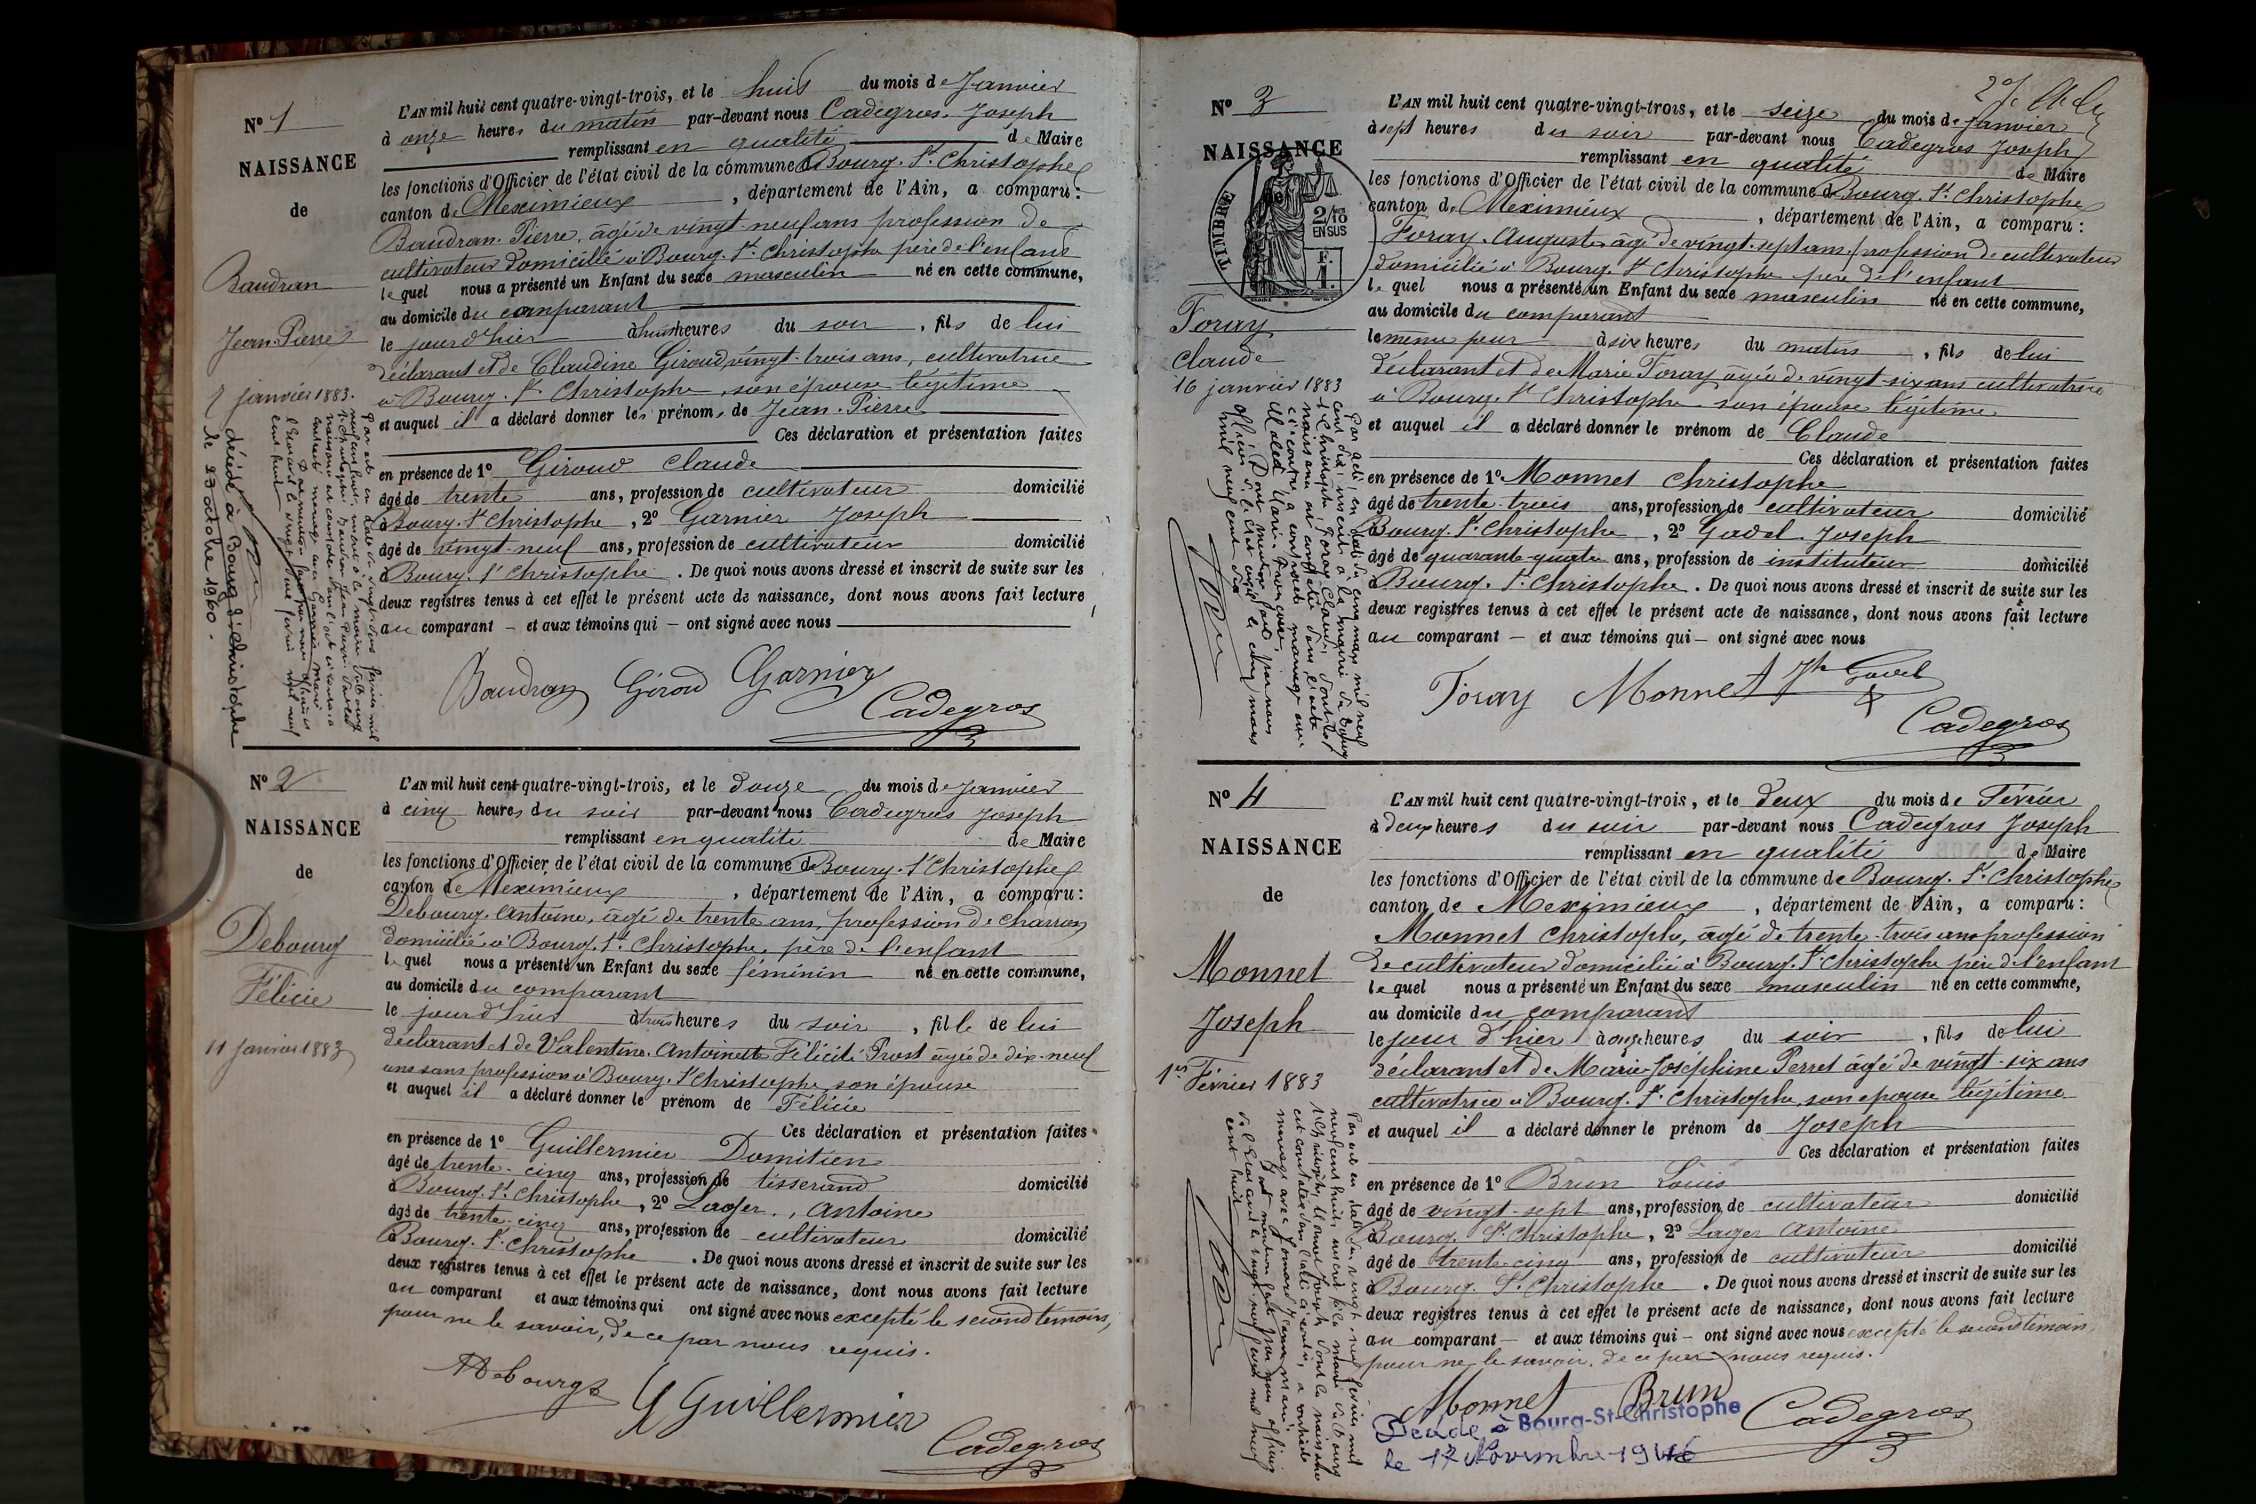 N° 1
NAISSANCE
de
Baudran
Jean-Pierre
7 janvier 1883.
décédé à Bourg St Christophe
le 23 octobre 1960.
L'AN mil huit cent quatre-vingt-trois, et le huit du mois de Janvier
à onze heures du matin par-devant nous Cadegros Joseph
remplissant en qualité de Maire
les fonctions d'Officier de l'état civil de la commune de Bourg. St. Christophe
canton de Meximieux, département de l'Ain, a comparu:
Baudran Pierre, âgé de vingt-neuf ans profession de
cultivateur domicilié à Bourg. St Christophe père de l'enfant
lequel nous a présenté un Enfant du sexe masculin né en cette commune,
au domicile du comparant
le jour d'hier à huit heures du soir, fils de lui
déclarant et de Claudine Giroud, vingt-trois ans, cultivatrice
à Bourg. St Christophe, son épouse légitime
et auquel il a déclaré donner les prénoms de Jean-Pierre
Ces déclaration et présentation faites
en présence de 1° Giroud Claude
âgé de trente ans, profession de cultivateur domicilié
à Bourg. St Christophe, 2° Garnier Joseph
âgé de vingt-neuf ans, profession de cultivateur domicilié
à Bourg. St Christophe. De quoi nous avons dressé et inscrit de suite sur les
deux registres tenus à cet effet le présent acte de naissance, dont nous avons fait lecture
au comparant - et aux témoins qui - ont signé avec nous
Baudran Giroud Garnier
Cadegros
N° 2
NAISSANCE
de
Debourg
Félicie
11 janvier 1883
L'AN mil huit cent quatre-vingt-trois, et le douze du mois de Janvier
à cinq heures du soir par-devant nous Cadegros Joseph
remplissant en qualité de Maire
les fonctions d'Officier de l'état civil de la commune de Bourg. St Christophe
canton de Meximieux, département de l'Ain, a comparu:
Debourg Antoine, âgé de trente ans, profession de charron
domicilié à Bourg. St Christophe, père de l'enfant
lequel nous a présenté un Enfant du sexe féminin né en cette commune,
au domicile du comparant
le jour d'hier à trois heures du soir, fille de lui
déclarant et de Valentine Antoinette Félicité Prost âgée de dix-neuf
ans sans profession à Bourg. St Christophe, son épouse
et auquel il a déclaré donner le prénom de Félicie
Ces déclaration et présentation faites
en présence de 1° Guillermier Domitien
âgé de trente-cinq ans, profession de tisserand domicilié
à Bourg. St Christophe, 2° Lager, Antoine
âgé de trente-cinq ans, profession de cultivateur domicilié
à Bourg. St Christophe. De quoi nous avons dressé et inscrit de suite sur les
deux registres tenus à cet effet le présent acte de naissance, dont nous avons fait lecture
au comparant et aux témoins qui ont signé avec nous excepté le second témoin,
pour ne le savoir, de ce par nous requis.
Debourg Guillermier
Cadegros
N° 3
NAISSANCE
TIMBRE
2/10 EN SUS
F. 1.
Foray
Claude
16 janvier 1883
L'AN mil huit cent quatre-vingt-trois, et le seize du mois de janvier
à sept heures du soir par-devant nous Cadegros Joseph
remplissant en qualité de Maire
les fonctions d'Officier de l'état civil de la commune de Bourg. St Christophe
canton de Meximieux, département de l'Ain, a comparu:
Foray Auguste âgé de vingt-sept ans profession de cultivateur
domicilié à Bourg. St Christophe père de l'enfant
lequel nous a présenté un Enfant du sexe masculin né en cette commune,
au domicile du comparant
le même jour à six heures du matin, fils de lui
déclarant et de Marie Foray âgée de vingt-six ans cultivatrice
à Bourg. St Christophe son épouse légitime
et auquel il a déclaré donner le prénom de Claude
Ces déclaration et présentation faites
en présence de 1° Monnet Christophe
âgé de trente-trois ans, profession de cultivateur domicilié
à Bourg. St Christophe, 2° Gadel Joseph
âgé de quarante-quatre ans, profession de instituteur domicilié
à Bourg. St Christophe. De quoi nous avons dressé et inscrit de suite sur les
deux registres tenus à cet effet le présent acte de naissance, dont nous avons fait lecture
au comparant - et aux témoins qui - ont signé avec nous
Foray Monnet Jh Gadel
Cadegros
N° 4
NAISSANCE
de
Monnet
Joseph
1er Février 1883
L'AN mil huit cent quatre-vingt-trois, et le deux du mois de Février
à deux heures du soir par-devant nous Cadegros Joseph
remplissant en qualité de Maire
les fonctions d'Officier de l'état civil de la commune de Bourg. St. Christophe
canton de Meximieux, département de l'Ain, a comparu:
Monnet Christophe, âgé de trente-trois ans profession
de cultivateur domicilié à Bourg. St Christophe père de l'enfant
lequel nous a présenté un Enfant du sexe masculin né en cette commune,
au domicile du comparant
le jour d'hier à onze heures du soir, fils de lui
déclarant et de Marie-Joséphine Perret âgé de vingt-six ans
cultivatrice à Bourg. St. Christophe, son épouse légitime
et auquel il a déclaré donner le prénom de Joseph
Ces déclaration et présentation faites
en présence de 1° Brun Louis
âgé de vingt-sept ans, profession de cultivateur domicilié
à Bourg. St Christophe, 2° Lager Antoine
âgé de trente-cinq ans, profession de cultivateur domicilié
à Bourg. St Christophe. De quoi nous avons dressé et inscrit de suite sur les
deux registres tenus à cet effet le présent acte de naissance, dont nous avons fait lecture
au comparant - et aux témoins qui - ont signé avec nous excepté le second témoin
pour ne le savoir, de ce par nous requis.
Monnet Brun
Cadegros
Décédé à Bourg-St-Christophe
le 17 Novembre 1946